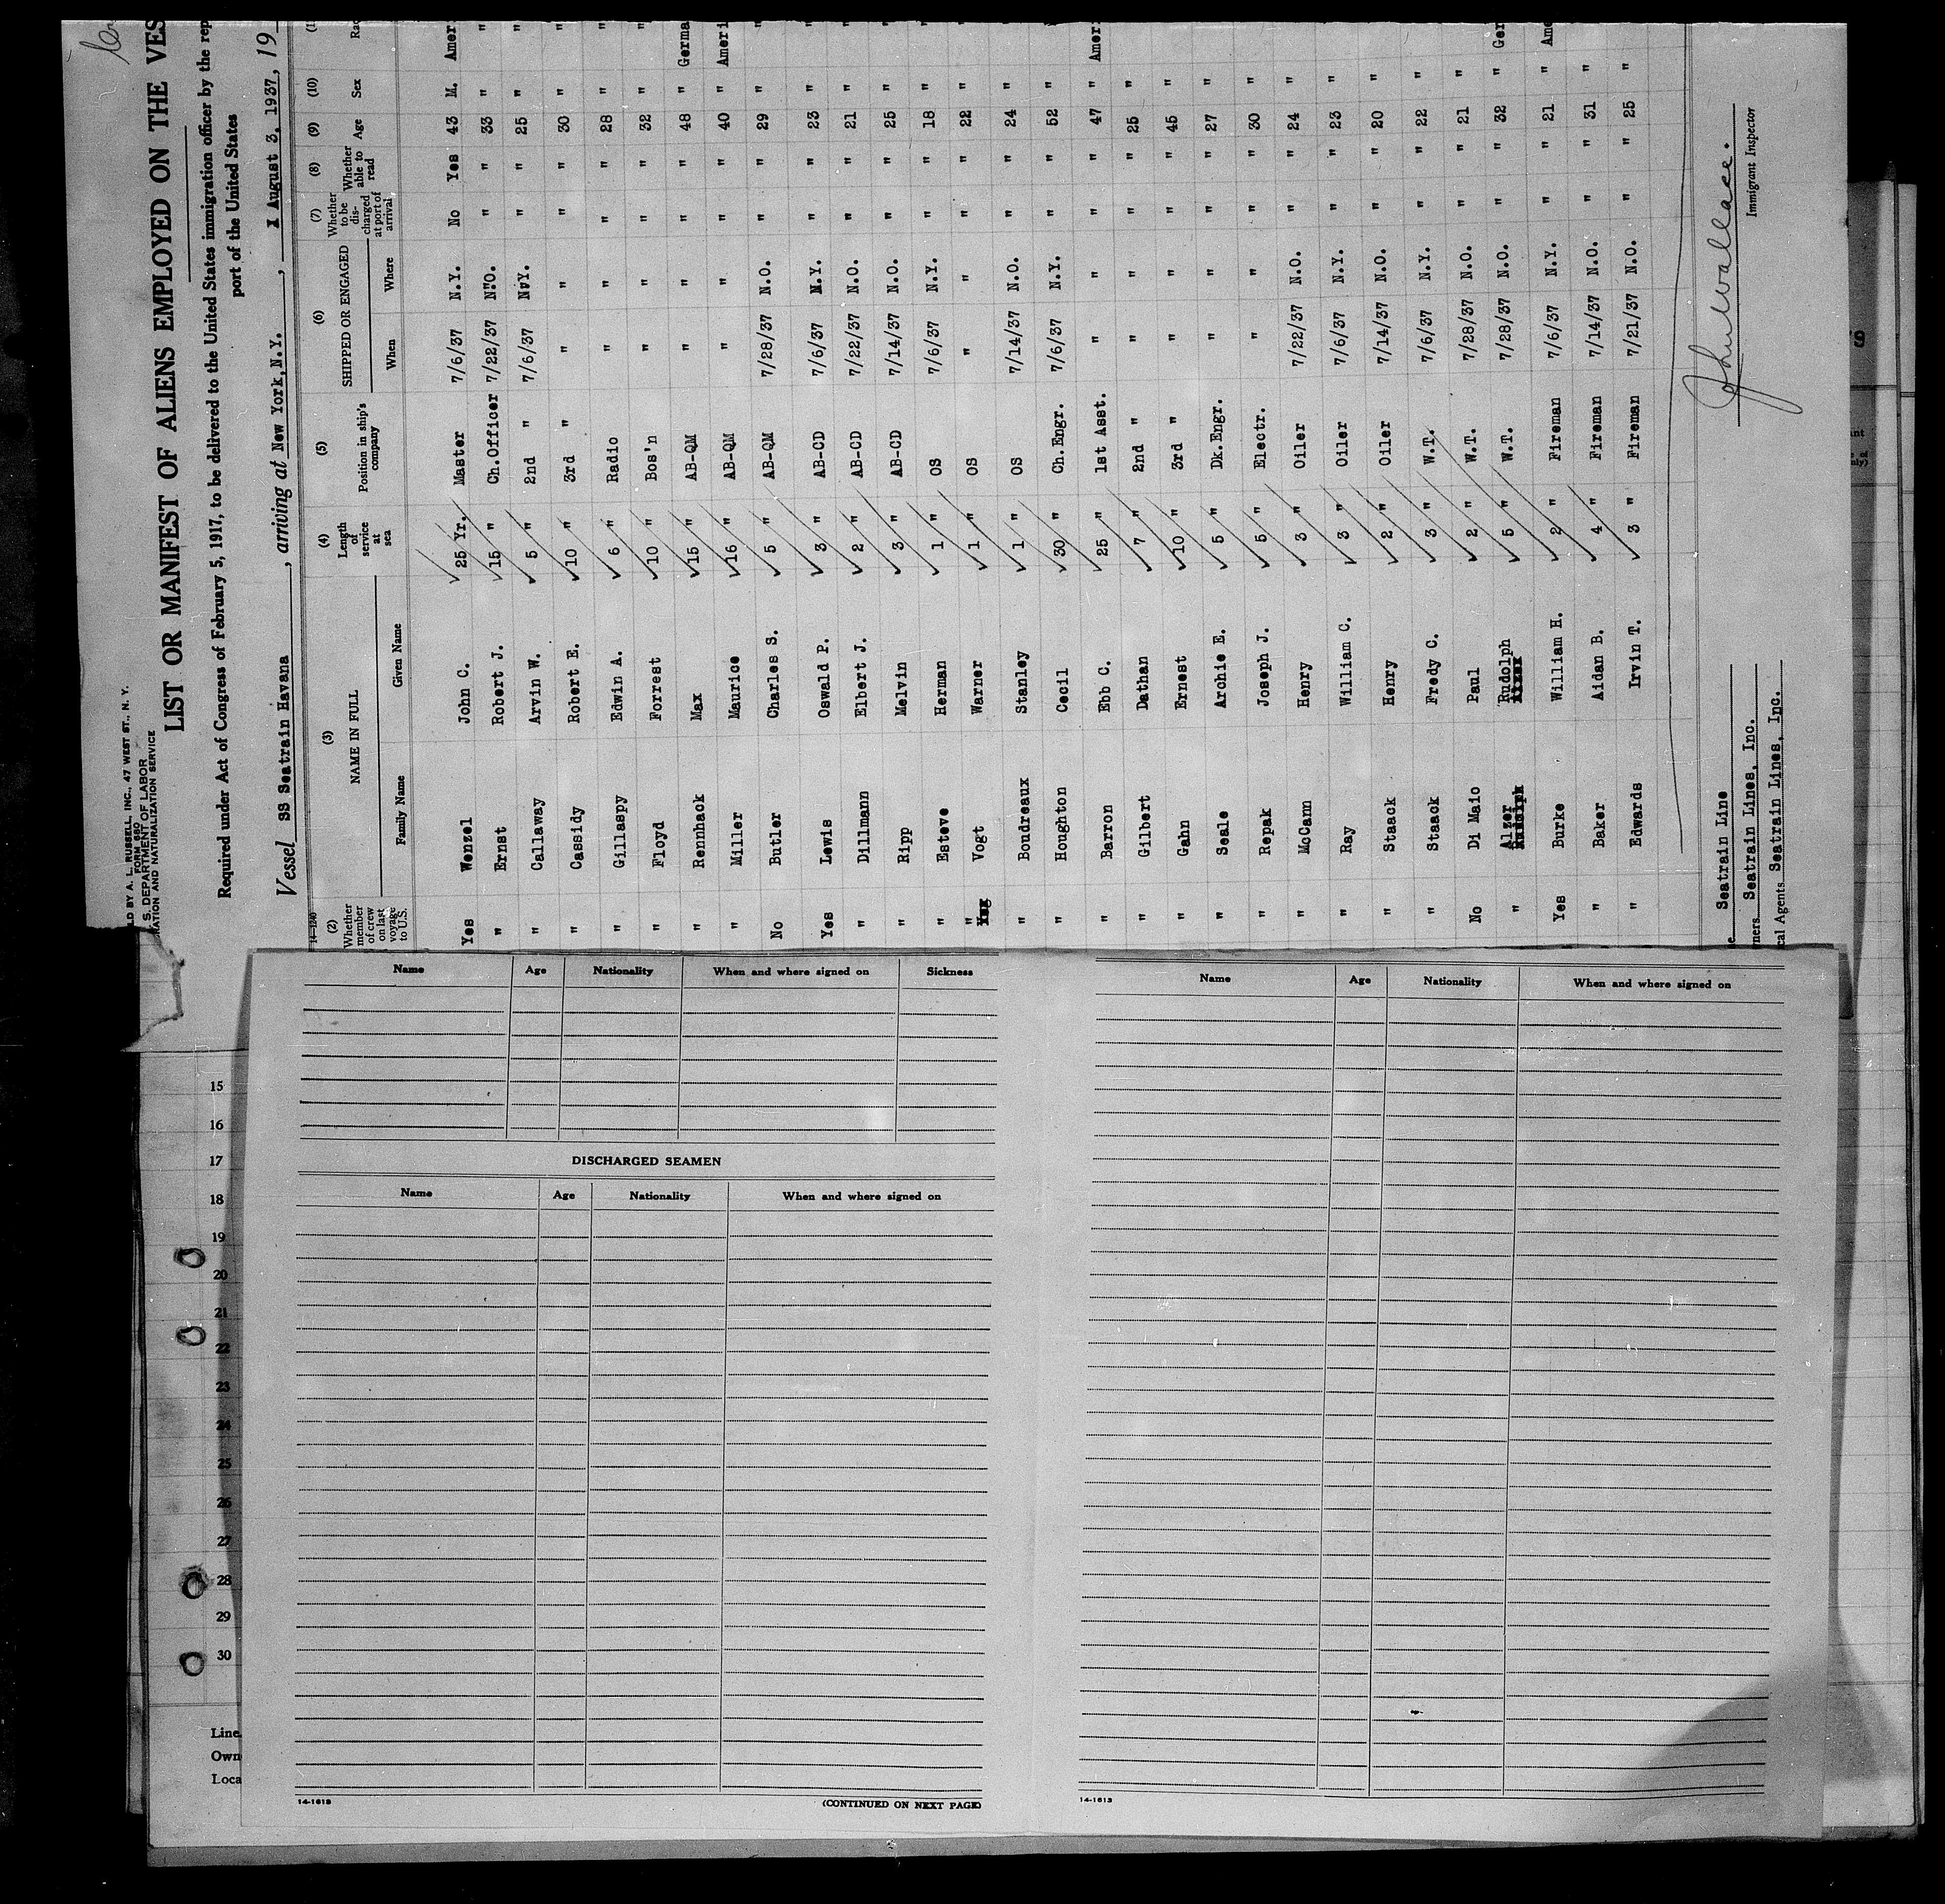 LD BY A. L. RUSSELL, INC., 47 WEST ST., N. Y.
FORM 680
S. DEPARTMENT OF LABOR
ATION AND NATURALIZATION SERVICE
LIST OR MANIFEST OF ALIENS EMPLOYED ON THE VES
Required under Act of Congress of February 5, 1917, to be delivered to the United States immigration officer by the rep
port of the United States
Vessel SS Seatrain Havana , arriving at New York, N.Y. , August 3, 1937, 19
14-1240
(2) Whether member of crew on last voyage to U.S. (3) NAME IN FULL Family Name Given Name (4) Length of service at sea (5) Position in ship's company (6) SHIPPED OR ENGAGED When Where (7) Whether to be discharged at port of arrival (8) Whether able to read (9) Age (10) Sex
Yes Wenzel John C. 25 Yr. Master 7/6/37 N.Y. No Yes 43 M. Amer
" Ernst Robert J. 15 " Ch.Officer 7/22/37 N.O. " " 33 " "
" Callaway Arvin W. 5 " 2nd " 7/6/37 N.Y. " " 25 " "
" Cassidy Robert E. 10 " 3rd " " " " " 30 " "
" Gillaspy Edwin A. 6 " Radio " " " " 28 " "
" Floyd Forrest 10 " Bos'n " " " " 32 " "
" Rennhack Max 15 " AB-QM " " " " 48 " Germa
" Miller Maurice 16 " AB-QM " " " " 40 " Ameri
No Butler Charles S. 5 " AB-QM 7/28/37 N.O. " " 29 " "
Yes Lewis Oswald P. 3 " AB-CD 7/6/37 N.Y. " " 23 " "
" Dillmann Elbert J. 2 " AB-CD 7/22/37 N.O. " " 21 " "
" Ripp Melvin 3 " AB-CD 7/14/37 N.O. " " 25 " "
" Esteve Herman 1 " OS 7/6/37 N.Y. " " 18 " "
" Vogt Warner 1 " OS " " " " 22 " "
" Boudreaux Stanley 1 " OS 7/14/37 N.O. " " 24 " "
" Houghton Cecil 30 " Ch.Engr. 7/6/37 N.Y. " " 52 " "
" Barron Ebb C. 25 " 1st Asst. " " " " 47 " Amer
" Gilbert Dathan 7 " 2nd " " " " " 25 "
" Gahn Ernest 10 " 3rd " " " " " 45 "
" Seale Archie E. 5 " Dk.Engr. " " " " 27 "
" Repak Joseph J. 5 " Electr. " " " " 30 "
" McCann Henry 3 " Oiler 7/22/37 N.O. " " 24 "
" Ray William C. 3 " Oiler 7/6/37 N.Y. " " 23 "
" Staack Henry 2 " Oiler 7/14/37 N.O. " " 20 "
" Staack Fredy C. 3 " W.T. 7/6/37 N.Y. " " 22 "
No Di Maio Paul 2 " W.T. 7/28/37 N.O. " " 21 "
" Alzer Rudolph 5 " W.T. 7/28/37 N.O. " " 32 " Ger
Yes Burke William H. 2 " Fireman 7/6/37 N.Y. " " 21 " Ame
" Baker Aidan B. 4 " Fireman 7/14/37 N.O. " " 31 "
" Edwards Irvin T. 3 " Fireman 7/21/37 N.O. " " 25 "
Seatrain Line
ners Seatrain Lines, Inc.
cal Agents Seatrain Lines, Inc.
John Wallace.
Immigrant Inspector
Name Age Nationality When and where signed on Sickness
DISCHARGED SEAMEN
Name Age Nationality When and where signed on
14-1613
(CONTINUED ON NEXT PAGE)
Name Age Nationality When and where signed on
14-1613
15
16
17
18
19
20
21
22
23
24
25
26
27
28
29
30
Line
Own
Loca